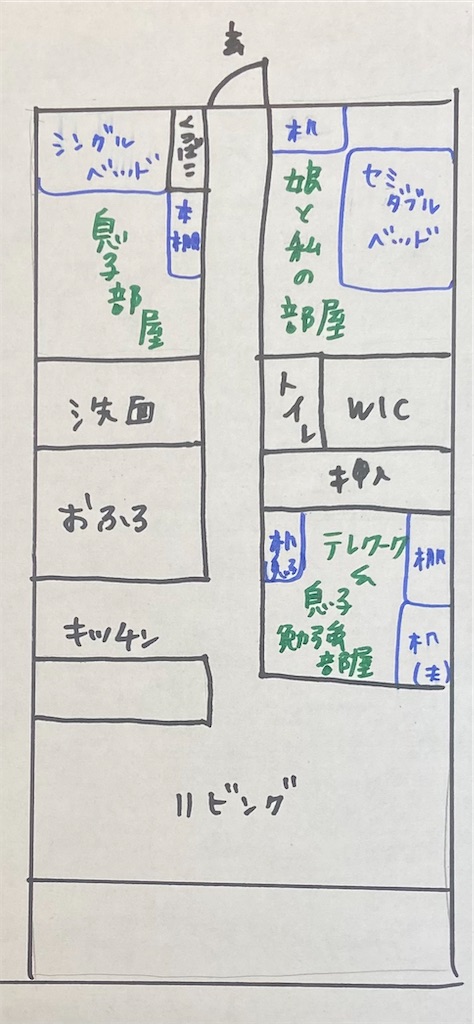 玄
シングル
ベッド
くつばこ
机
本棚
息子部屋
娘と私の部屋
セミ
ダブル
ベッド
洗面
トイレ
WIC
おふろ
押入
机
テレワーク
&
息子
勉強
部屋
棚
キッチン
机
(夫)
リビング